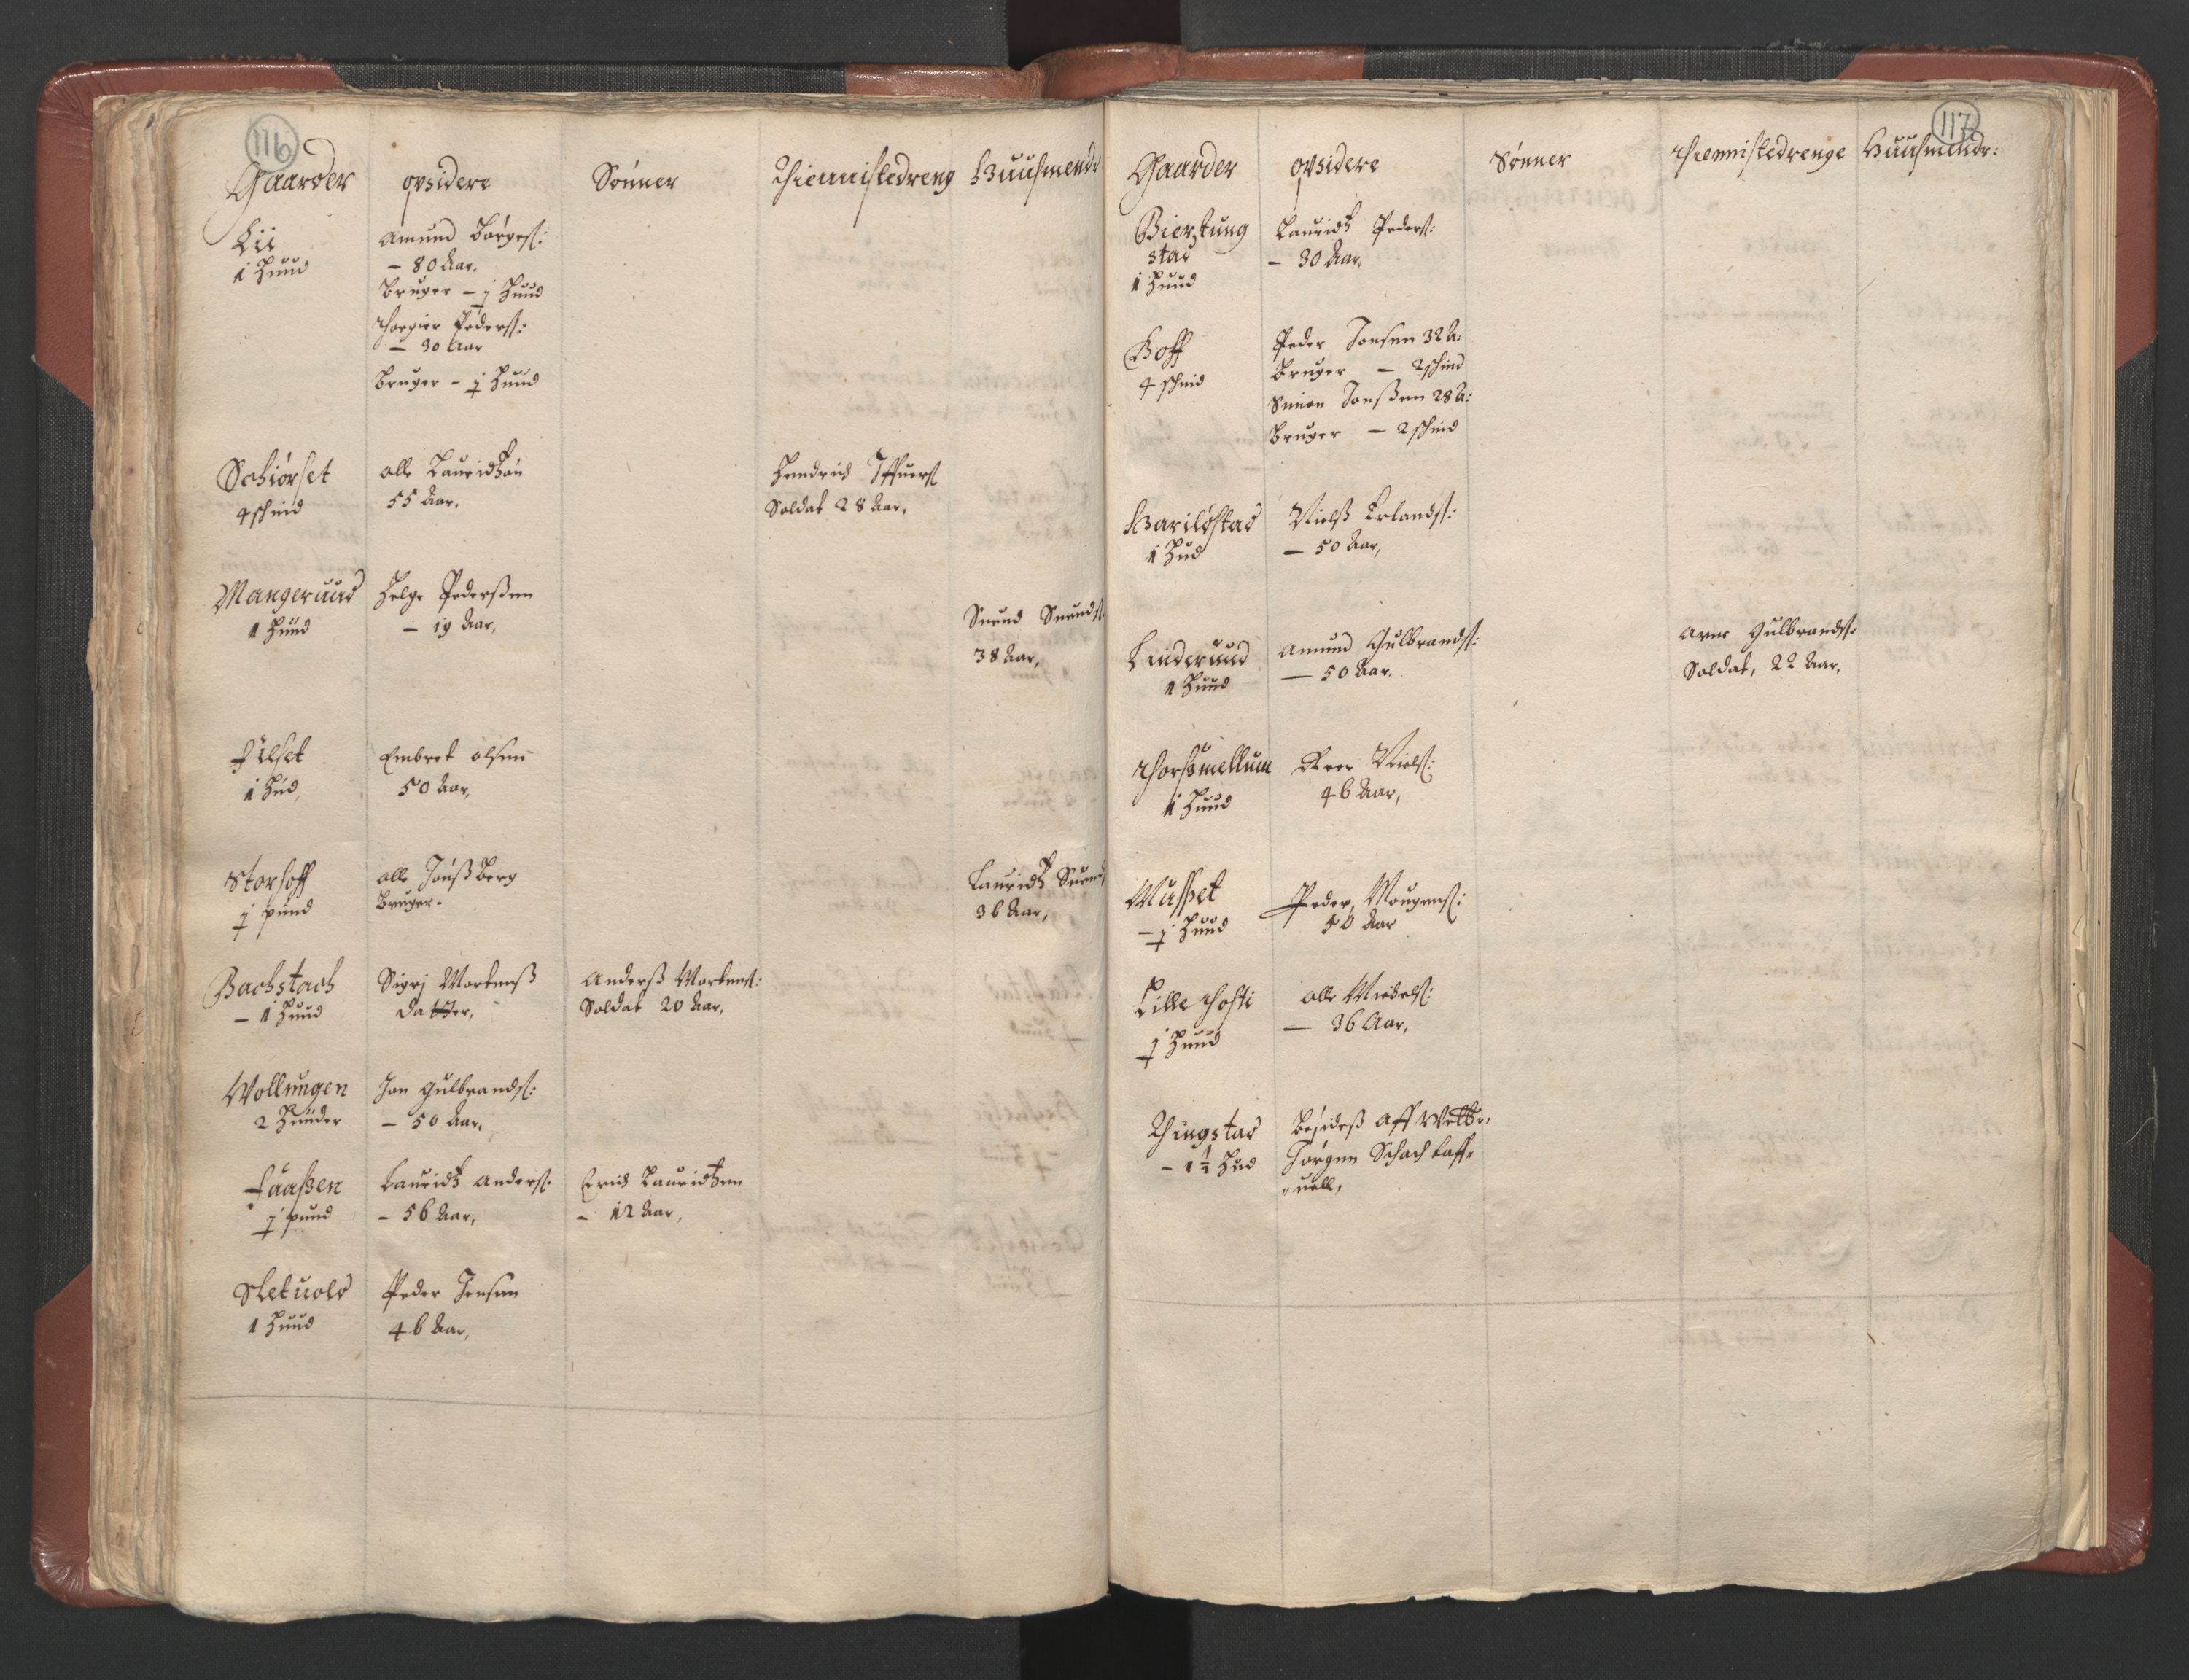 116
Gaarder opsidere Sönner Thiennistedreng Huusmend
Lii
1 Huud
Amund Börges:
– 80 Aar.
Bruger – ½ Huud
Thorgier Peders:
– 30 Aar
Bruger – ½ Huud
Schiörset
4 schind
Olle Lauridtzön
55 Aar.
Hendrich Iffuers
Soldat 28 Aar,
Mangeruud
1 Huud
Helge Pederßen
– 19 Aar,
Suend Suends
38 Aar,
Jülset
1 Hud,
Embret Olsen
50 Aar,
Storhoff
½ pund
Olle Jonß Berg
Bruger.
Lauridtz Suends
36 Aar,
Bachstach
– 1 Huud
Sigri Mortenß
Datter,
Anderß Mortens:
Soldat 20 Aar,
Wollungen
2 Huuder
Jon Gulbrands:
– 50 Aar,
Faaßen
½ pund
Lauridtz Anders:
– 56 Aar,
Erich Lauridtzen
– 12 Aar,
Sletuold
1 Huud
Peder Jensen
46 Aar,
117
Gaarder opsidere Sönner Thiennistedrenge Huusmendr:
Bierstung
stad
1 Huud
Lauridtz Peders:
– 30 Aar.
Hoff
4 schind
Peder Jonsen 32 A:
Bruger – 2 schind
Simon Jonßen 28 A:
Bruger – 2 schind
Harildstad
1 Hud
Nielß Erlands:
– 50 Aar,
Linderuud
1 Huud
Amund Gulbrands:
– 50 Aar,
Arne Gulbrands:
Soldat, 22 Aar,
Thorsmellum
1 Huud
Niels:
46 Aar,
Musset
– ½ Huud
Peder Mougens:
50 Aar
Lille Thosti
½ Huud
Olle Michels:
– 36 Aar,
Thingstad
– 1½ Hud
Besideß aff Welb:
Jörgen Schach